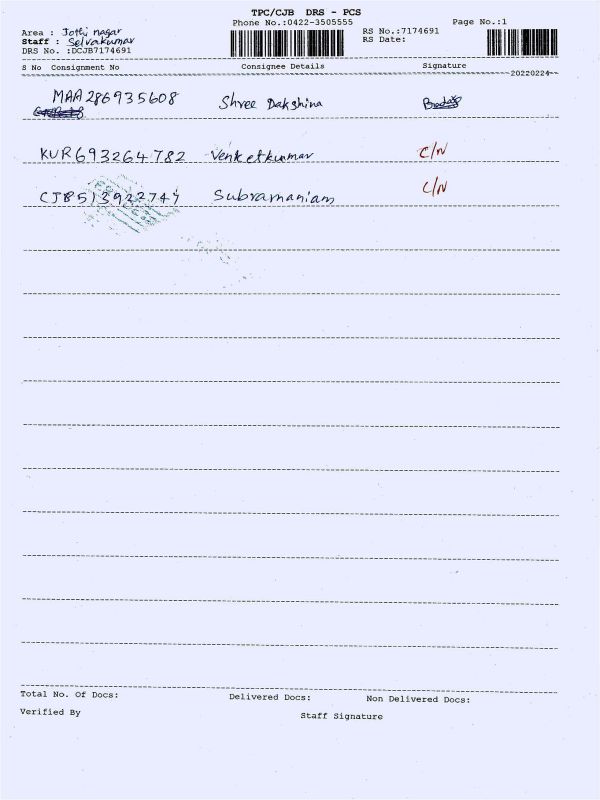 TPC/CJB DRS - PCS
Phone No.:0422-3505555
Page No.:1
Area : Jothi nagar
Staff : Selvakumar
DRS No. :DCJB7174691
RS No.:7174691
RS Date:
S No Consignment No Consignee Details Signature
20220224
MAA286935608 Shree Dakshina
KUR693264782 Venketkumar C/N
CJB513922744 Subramaniam C/N
Total No. Of Docs: Delivered Docs: Non Delivered Docs:
Verified By Staff Signature